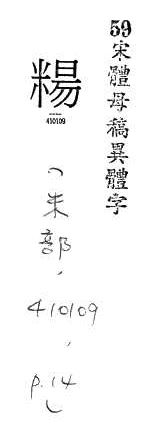 59宋體母稿異體字
410109
(米部,
410109
,
p.14
)